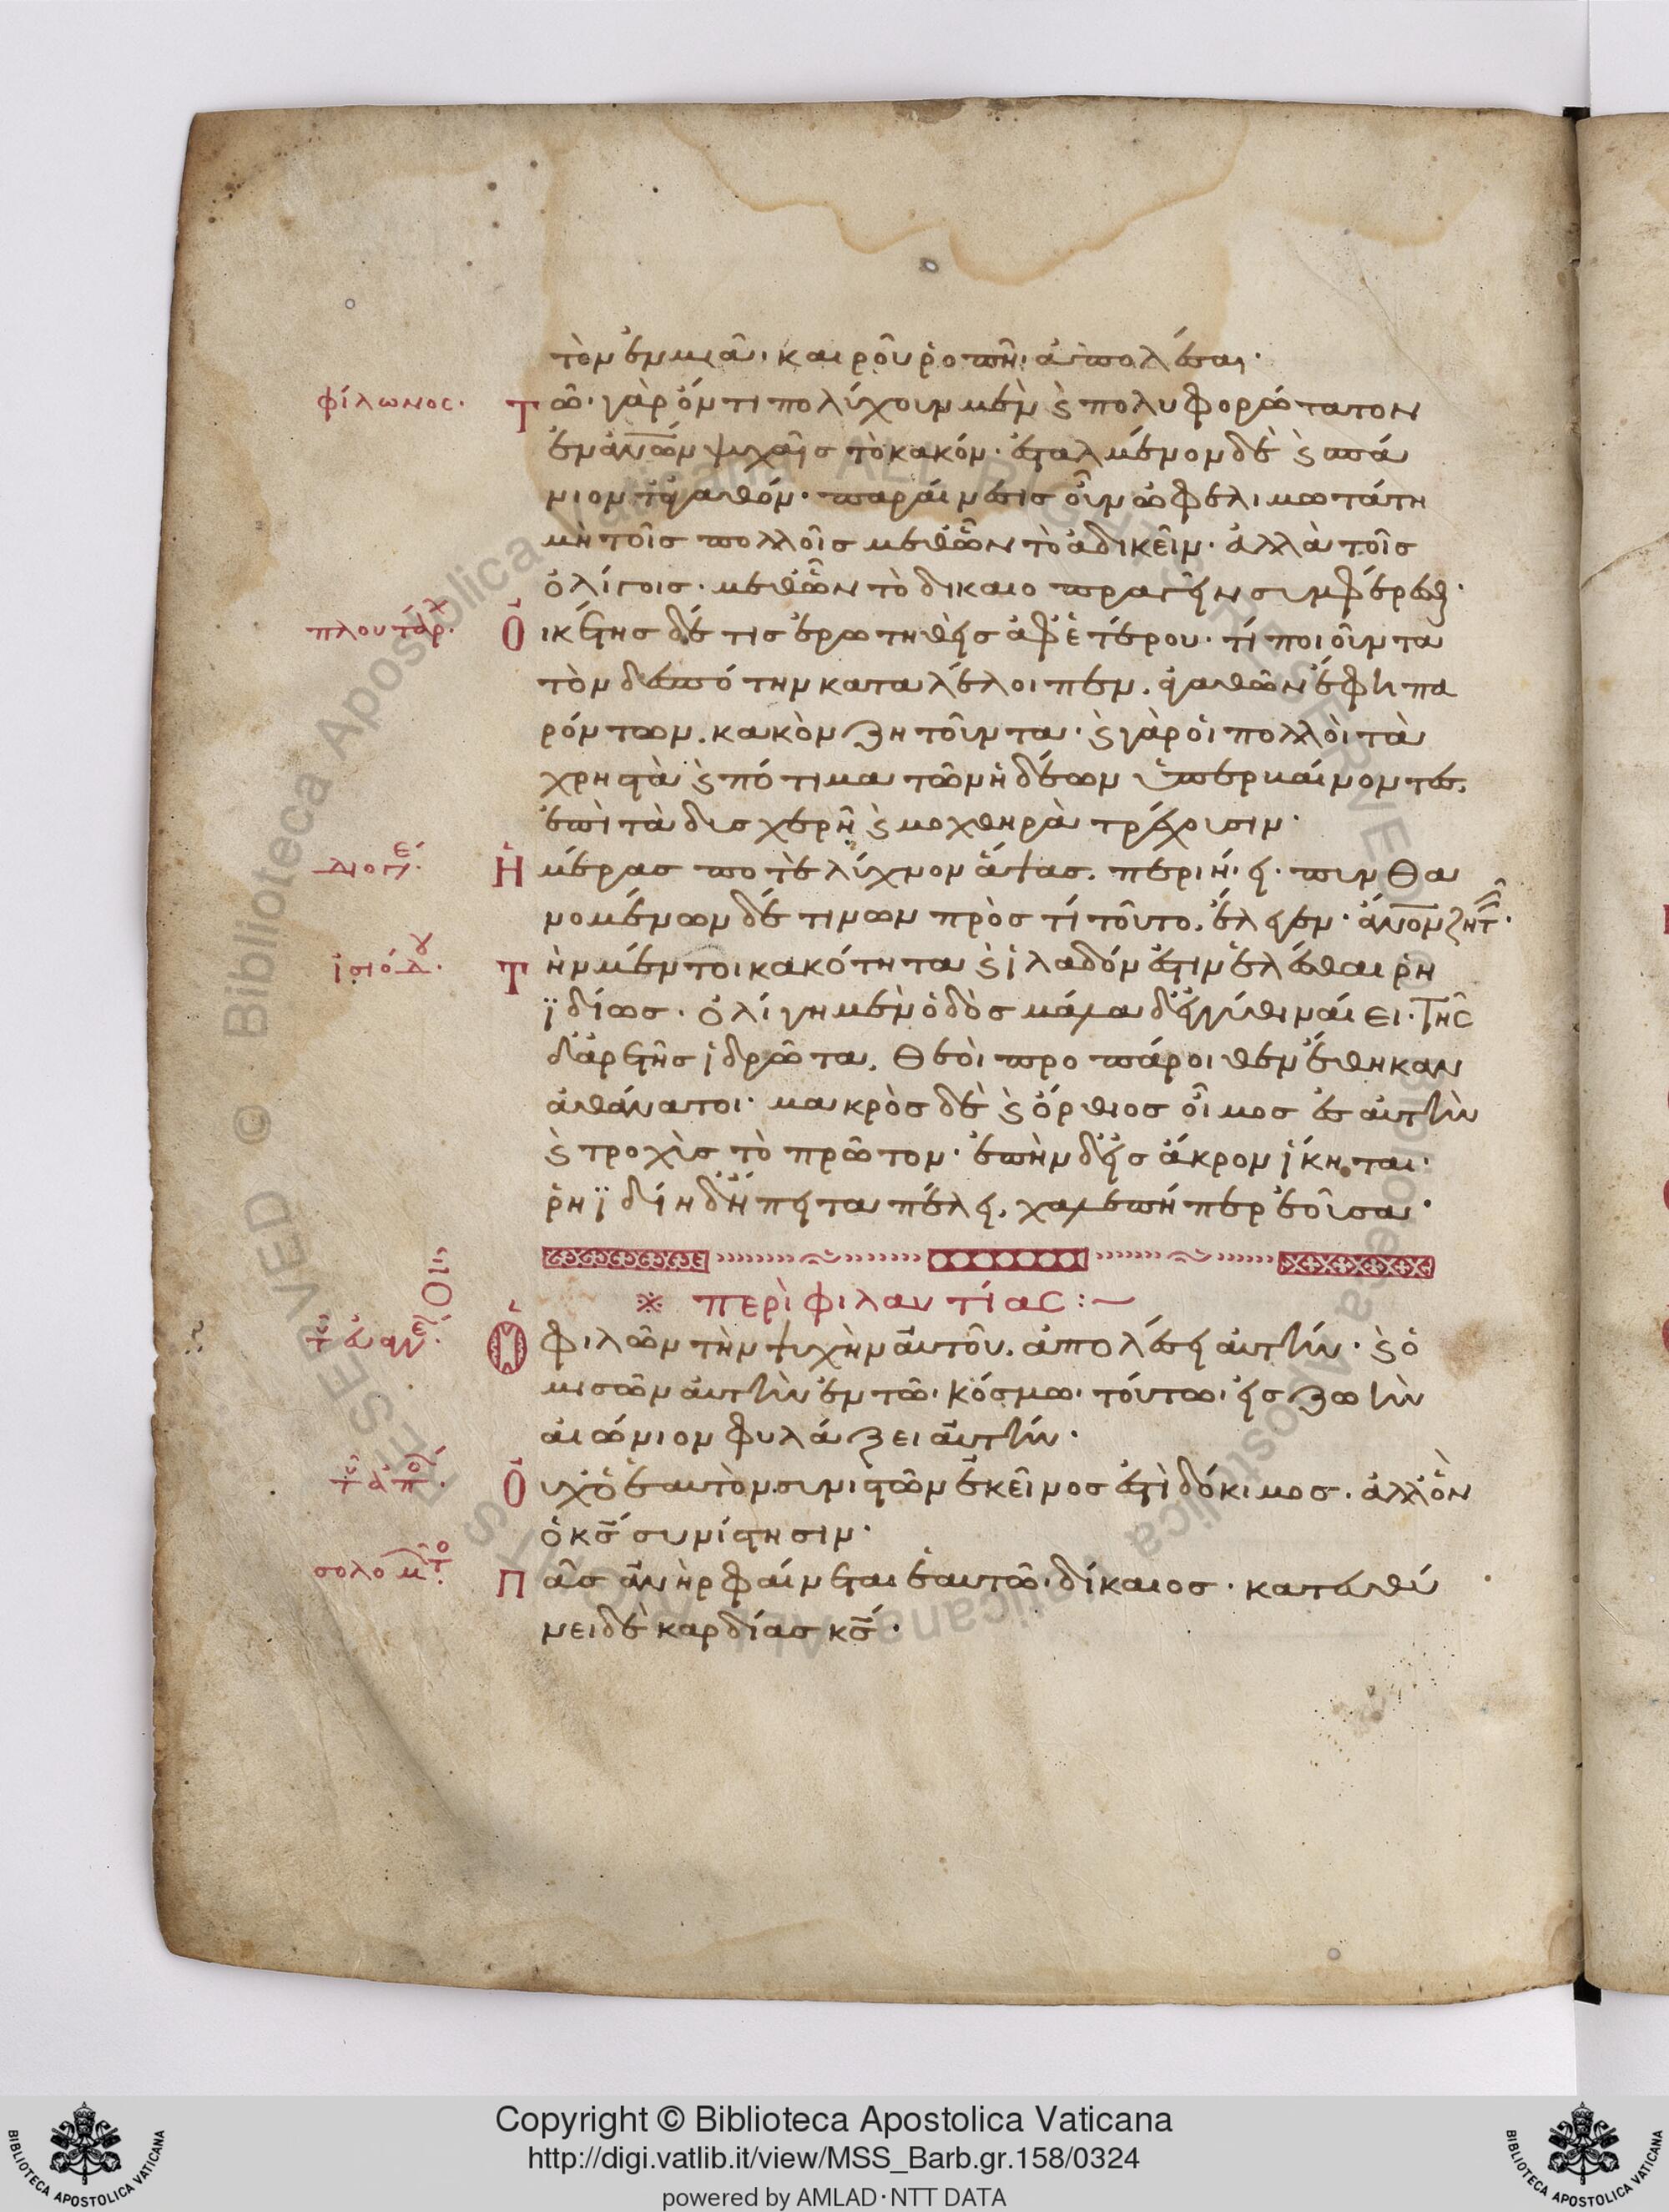 τὸν ἐν μιᾶ· καιροῦ ῥοπῆ· ἀπολέσαι·
φίλωνος· Τῶ· γὰρ ὄντι πολύχουν μὲν ϗ πολυφορώτατον
ἐν ἀν̅ω̅ν ψυχαῖς τὸ κακόν· ἐσταλμένον δὲ ϗ σπά
νιον τἀγαθόν· παραίνεσις οὖν ὠφελιμωτάτη
μὴ τοῖς πολλοῖς μεθῶν τὸ ἀδικεῖν· ἀλλὰ τοῖς
ὀλίγοις· μεθῶν τὸ δικαιοπραγεῖν συμφέρεσθ·
πλουτάρχ· Οἰκέτης δέ τις ἐρωτηθεὶς ἀφ' ἑτέρου· τί ποιοῦντα
τὸν δεσπότην καταλέλοιπεν. ἀγαθῶν ἔφη πα
ρόντων. κακὸν ζητοῦντα· ϗ γὰρ οἱ πολλοὶ τὰ
χρηστὰ ϗ πότιμα τῶν ἡδέων ὑπερβαίνοντες.
ἐπὶ τὰ δυσχερῆ ϗ μοχθηρὰ τρέχουσιν·
Διογέ· Ἡμέρας ποτὲ λύχνον ἅψας. περιήει· πυνθα
νομένων δέ τινων πρὸς τί τοῦτο. ἔλεγεν· ἄν̅ο̅ν ζητ·
ἡσιόδου· Τὴν μέν τοι κακότητα ϗ ἰλαδόν ἐστιν ἑλέσθαι ῥη
ϊδίως· ὀλίγη μὲν ὁδὸς μάλα δ' ἐγγύθι ναίει· Τῆς
δ' ἀρετῆς ἱδρῶτα. θεοὶ προπάροιθεν ἔθηκαν
ἀθάνατοι· μακρὸς δὲ ϗ ὄρθιος οἶμος ἐς αὐτὴν
ϗ τρηχὺς τὸ πρῶτον· ἐπὴν δ' εἰς ἄκρον ἵκηται·
ῥηϊδίη δἤπειτα πέλει. χαλεπή περ ἐοῦσα·
※ περὶ φιλαυτίας :—
ΛΟΓΟΣ ΟΞ
τοῦ εὐαγγε· Ὁ φιλῶν τὴν ψυχὴν αὐτοῦ. ἀπολέσει αὐτήν· ϗ ὁ
μισῶν αὐτὴν ἐν τῶ· κόσμω· τούτω· εἰς ζωὴν
αἰώνιον φυλάξει αὐτήν·
τοῦ ἀποστόλ· Οὐχ ὁ ἑαυτὸν συνιστῶν ἐκεῖνος ἐστὶ δόκιμος· ἀλλ' ὃν
ὁ κ̅ς̅ συνίστησιν·
σολομῶντο· Πᾶς ἀνὴρ φαίνεται ἑαυτῶ· δίκαιος· κατευθύ
νει δὲ καρδίας κ̅ς̅·
Copyright © Biblioteca Apostolica Vaticana
http://digi.vatlib.it/view/MSS_Barb.gr.158/0324
powered by AMLAD·NTT DATA
BIBLIOTECA APOSTOLICA VATICANA
BIBLIOTECA APOSTOLICA VATICANA